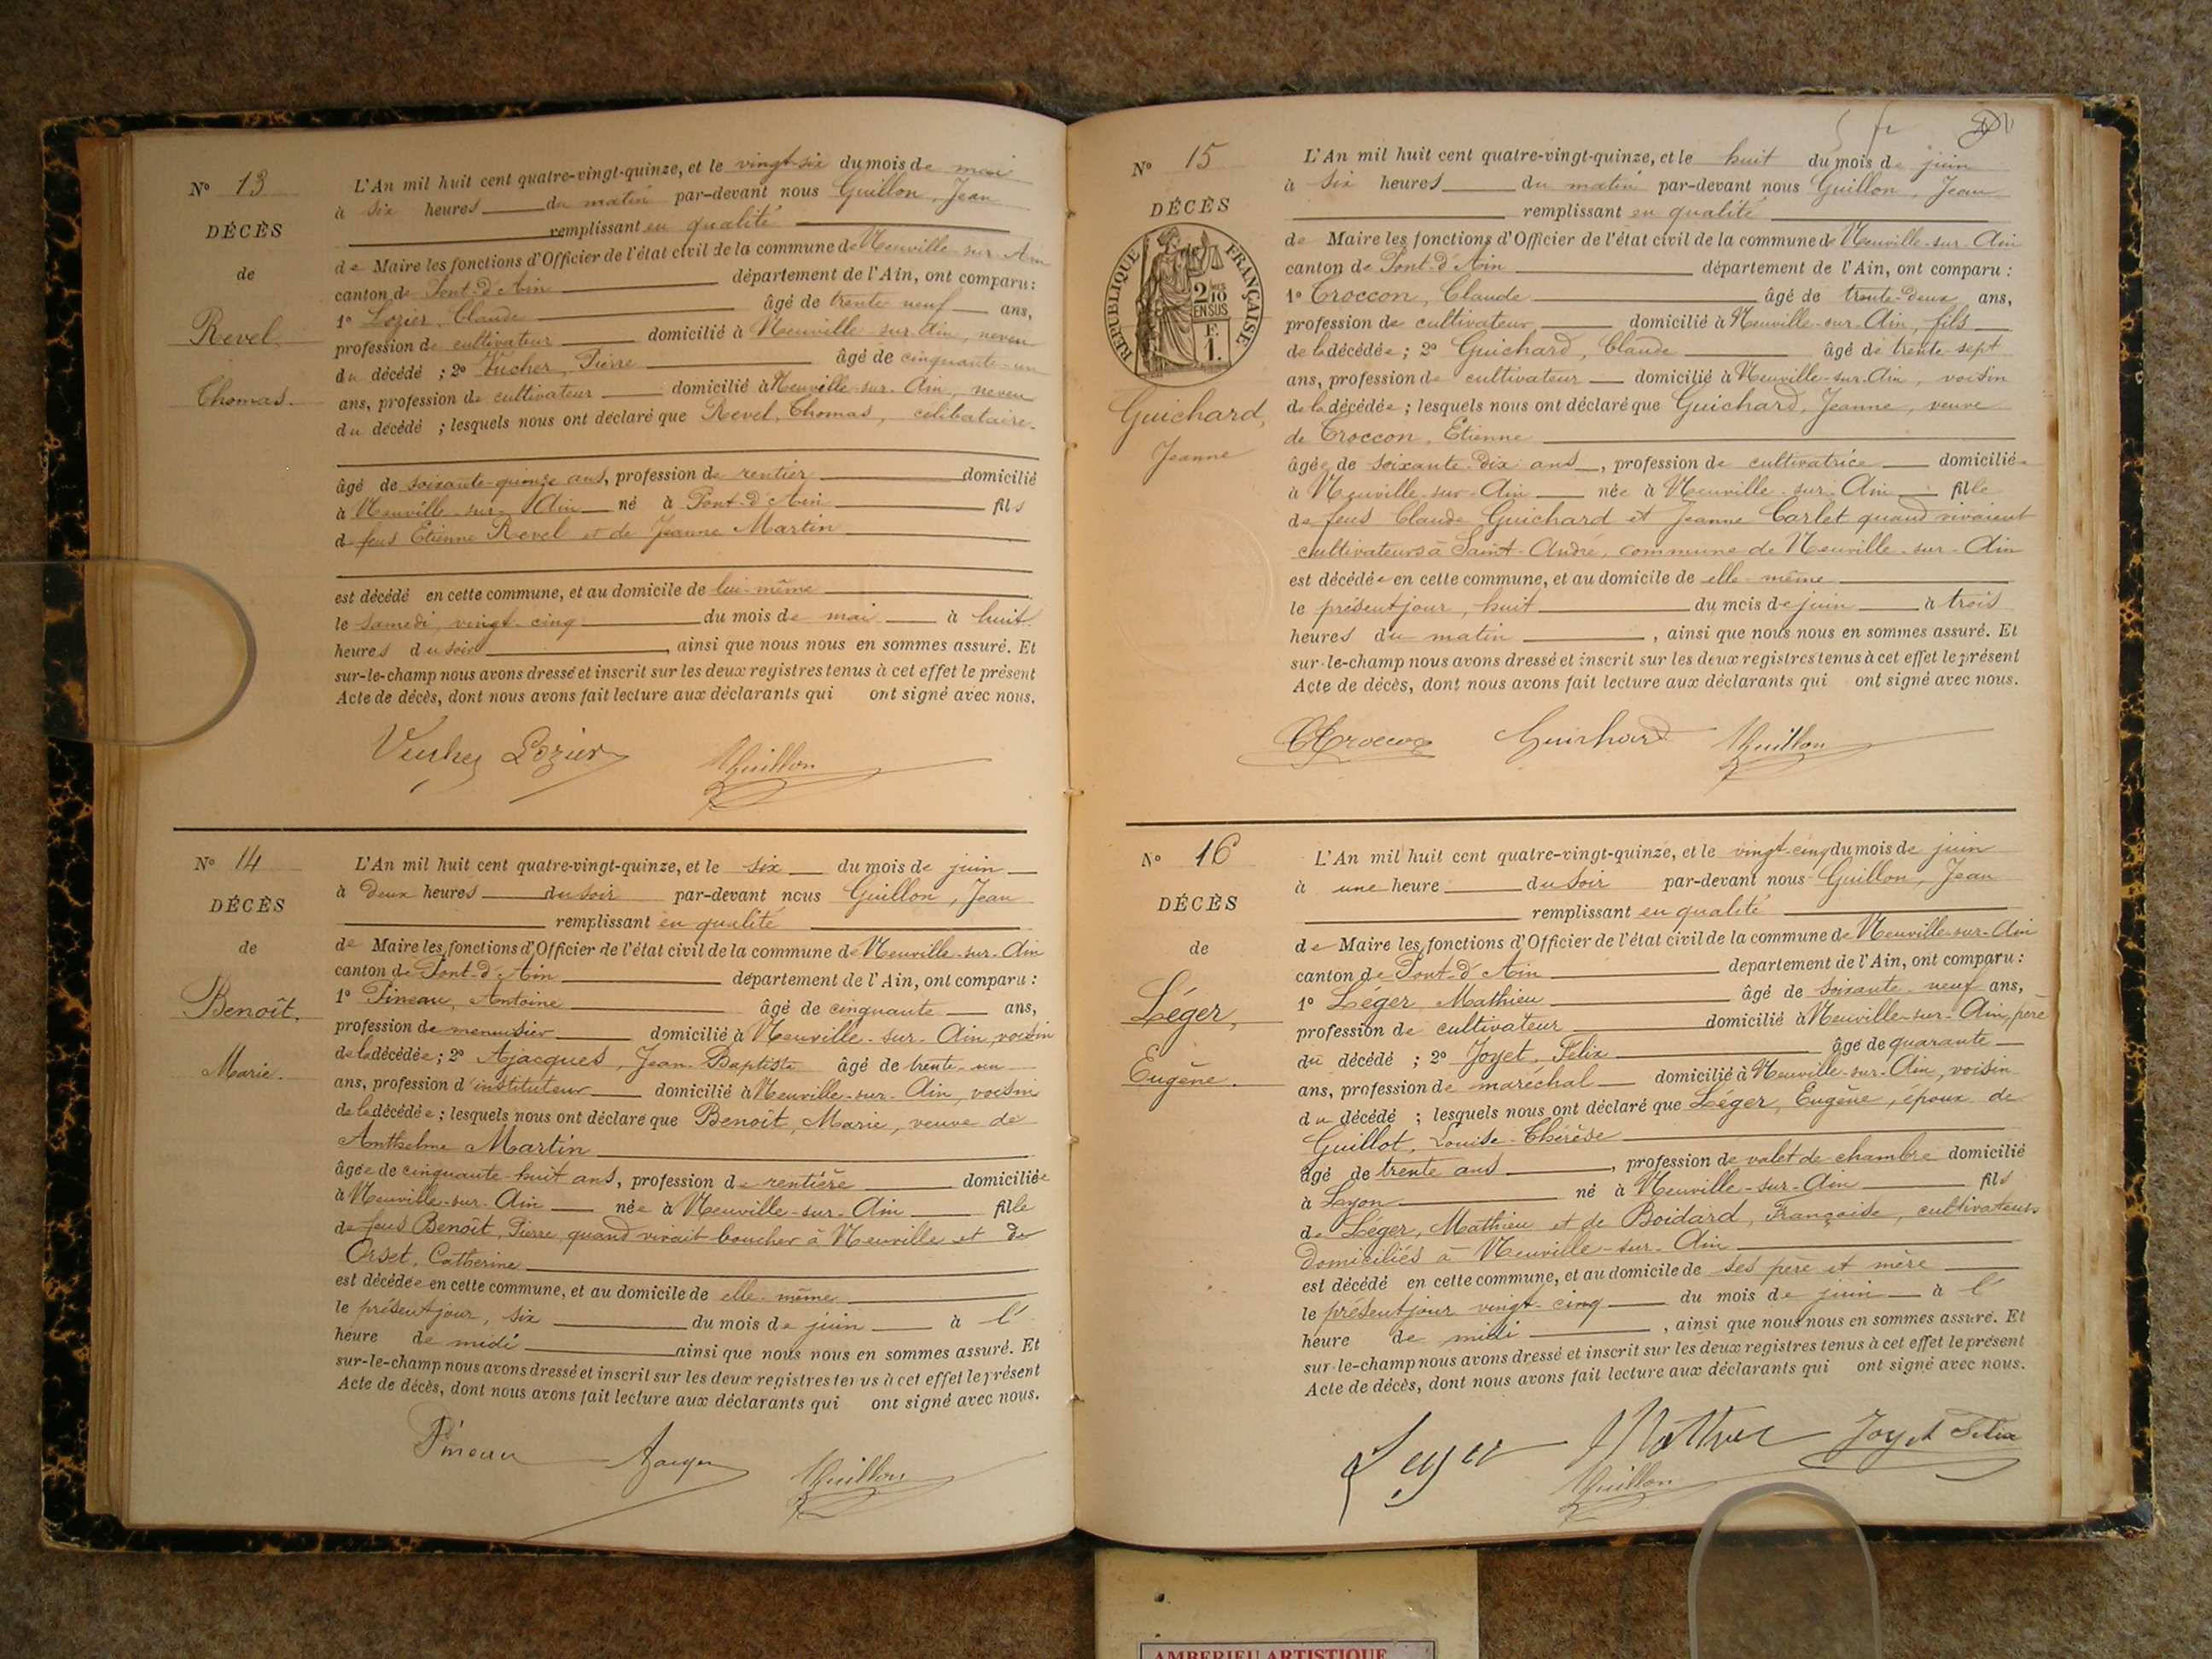 Nº 13
DÉCÈS
de
Revel.
Thomas.
L'An mil huit cent quatre-vingt-quinze, et le vingt-six du mois de mai
à six heures du matin par-devant nous Guillon, Jean
remplissant en qualité
de Maire les fonctions d'Officier de l'état civil de la commune de Neuville-sur-Ain
canton de Pont-d'Ain département de l'Ain, ont comparu :
1º Lozier, Claude âgé de trente neuf ans,
profession de cultivateur domicilié à Neuville-sur-Ain, neveu
du décédé ; 2º Vucher, Pierre âgé de cinquante-un
ans, profession de cultivateur domicilié à Neuville-sur-Ain, neveu
du décédé ; lesquels nous ont déclaré que Revel, Thomas, célibataire.
âgé de soixante-quinze ans, profession de rentier domicilié
à Neuville-sur-Ain né à Pont-d'Ain fils
de feus Etienne Revel et de Jeanne Martin
est décédé en cette commune, et au domicile de lui-même
le samedi vingt-cinq du mois de mai à huit
heures du soir, ainsi que nous nous en sommes assuré. Et
sur-le-champ nous avons dressé et inscrit sur les deux registres tenus à cet effet le présent
Acte de décès, dont nous avons fait lecture aux déclarants qui ont signé avec nous.
Vucher Lozier Guillon
Nº 14
DÉCÈS
de
Benoît.
Marie.
L'An mil huit cent quatre-vingt-quinze, et le six du mois de juin
à deux heures du soir par-devant nous Guillon, Jean
remplissant en qualité
de Maire les fonctions d'Officier de l'état civil de la commune de Neuville-sur-Ain
canton de Pont-d'Ain département de l'Ain, ont comparu :
1º Pineau, Antoine âgé de cinquante ans,
profession de menuisier domicilié à Neuville-sur-Ain, voisin
de la décédée ; 2º Ajacques, Jean-Baptiste âgé de trente-un
ans, profession d'instituteur domicilié à Neuville-sur-Ain, voisin
de la décédée ; lesquels nous ont déclaré que Benoît, Marie, veuve de
Anthelme Martin
âgée de cinquante-huit ans, profession de rentière domiciliée
à Neuville-sur-Ain née à Neuville-sur-Ain fille
de feus Benoît, Pierre, quand vivait boucher à Neuville et de
Orset, Catherine
est décédée en cette commune, et au domicile de elle-même
le présent jour, six du mois de juin à l'
heure de midi ainsi que nous nous en sommes assuré. Et
sur-le-champ nous avons dressé et inscrit sur les deux registres tenus à cet effet le présent
Acte de décès, dont nous avons fait lecture aux déclarants qui ont signé avec nous.
Pineau Guillon
Nº 15
DÉCÈS
RÉPUBLIQUE FRANÇAISE
2/10 EN SUS
F. 1.
Guichard,
Jeanne
L'An mil huit cent quatre-vingt-quinze, et le huit du mois de juin
à six heures du matin par-devant nous Guillon, Jean
remplissant en qualité
de Maire les fonctions d'Officier de l'état civil de la commune de Neuville-sur-Ain
canton de Pont-d'Ain département de l'Ain, ont comparu :
1º Troccon, Claude âgé de trente-deux ans,
profession de cultivateur domicilié à Neuville-sur-Ain, fils
de la décédée ; 2º Guichard, Claude âgé de trente-sept
ans, profession de cultivateur domicilié à Neuville-sur-Ain, voisin
de la décédée ; lesquels nous ont déclaré que Guichard, Jeanne, veuve
de Troccon, Etienne
âgée de soixante-dix ans, profession de cultivatrice domiciliée
à Neuville-sur-Ain née à Neuville-sur-Ain fille
de feus Claude Guichard et Jeanne Carlet quand vivaient
cultivateurs à Saint-André, commune de Neuville-sur-Ain
est décédée en cette commune, et au domicile de elle-même
le présent jour, huit du mois de juin à trois
heures du matin, ainsi que nous nous en sommes assuré. Et
sur-le-champ nous avons dressé et inscrit sur les deux registres tenus à cet effet le présent
Acte de décès, dont nous avons fait lecture aux déclarants qui ont signé avec nous.
CTroccon Guichard Guillon
Nº 16
DÉCÈS
de
Léger,
Eugène.
L'An mil huit cent quatre-vingt-quinze, et le vingt-cinq du mois de juin
à une heure du soir par-devant nous Guillon, Jean
remplissant en qualité
de Maire les fonctions d'Officier de l'état civil de la commune de Neuville-sur-Ain
canton de Pont-d'Ain département de l'Ain, ont comparu :
1º Léger, Mathieu âgé de soixante-neuf ans,
profession de cultivateur domicilié à Neuville-sur-Ain, père
du décédé ; 2º Joyet, Félix âgé de quarante
ans, profession de maréchal domicilié à Neuville-sur-Ain, voisin
du décédé ; lesquels nous ont déclaré que Léger, Eugène, époux de
Guillot, Louise-Thérèse
âgé de trente ans, profession de valet de chambre domicilié
à Lyon né à Neuville-sur-Ain fils
de Léger, Mathieu et de Boidard, Françoise, cultivateurs
domiciliés à Neuville-sur-Ain
est décédé en cette commune, et au domicile de ses père et mère
le présent jour vingt-cinq du mois de juin à l'
heure de midi, ainsi que nous nous en sommes assuré. Et
sur-le-champ nous avons dressé et inscrit sur les deux registres tenus à cet effet le présent
Acte de décès, dont nous avons fait lecture aux déclarants qui ont signé avec nous.
Leger Mathieu Joyet Felix
Guillon
AMBERIEU ARTISTIQUE